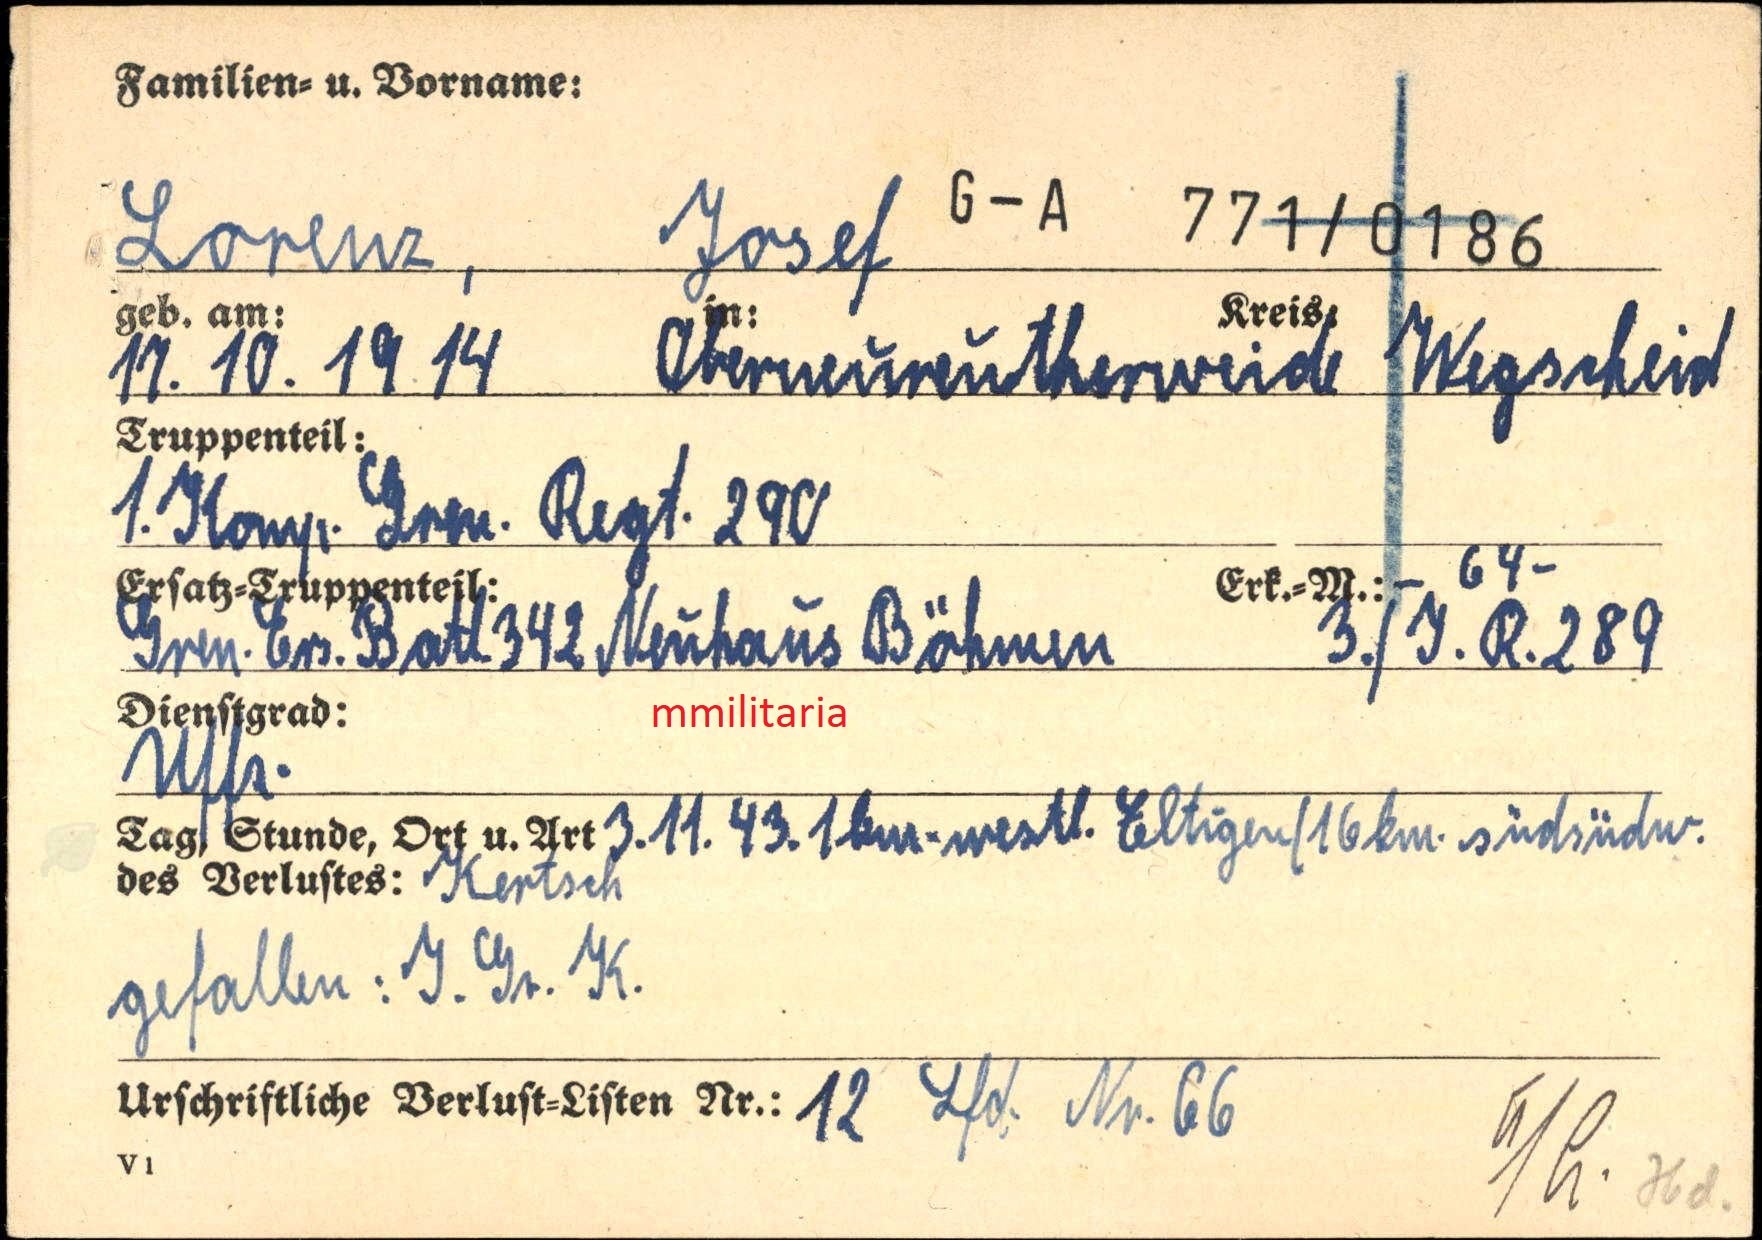 Familien- u. Vorname:
Lorenz, Josef G-A 771/0186
geb. am: in: Kreis:
17. 10. 1914 Oberneureutherweide Wegscheid
Truppenteil:
1. Komp. Gren. Regt. 290
Ersatz-Truppenteil: Erk.-M.: - 64 -
Gren. Ers. Batl. 342 Neuhaus Böhmen 3./J. R. 289
Dienstgrad:
mmilitaria
Uffz.
Tag, Stunde, Ort u. Art 3.11.43. 1 km westl. Eltigen/16 km. südsüdw.
des Verlustes: Kertsch
gefallen: J. Gr. K.
Urschriftliche Verlust-Listen Nr.: 12 Lfd. Nr. 66
V 1
Hd.